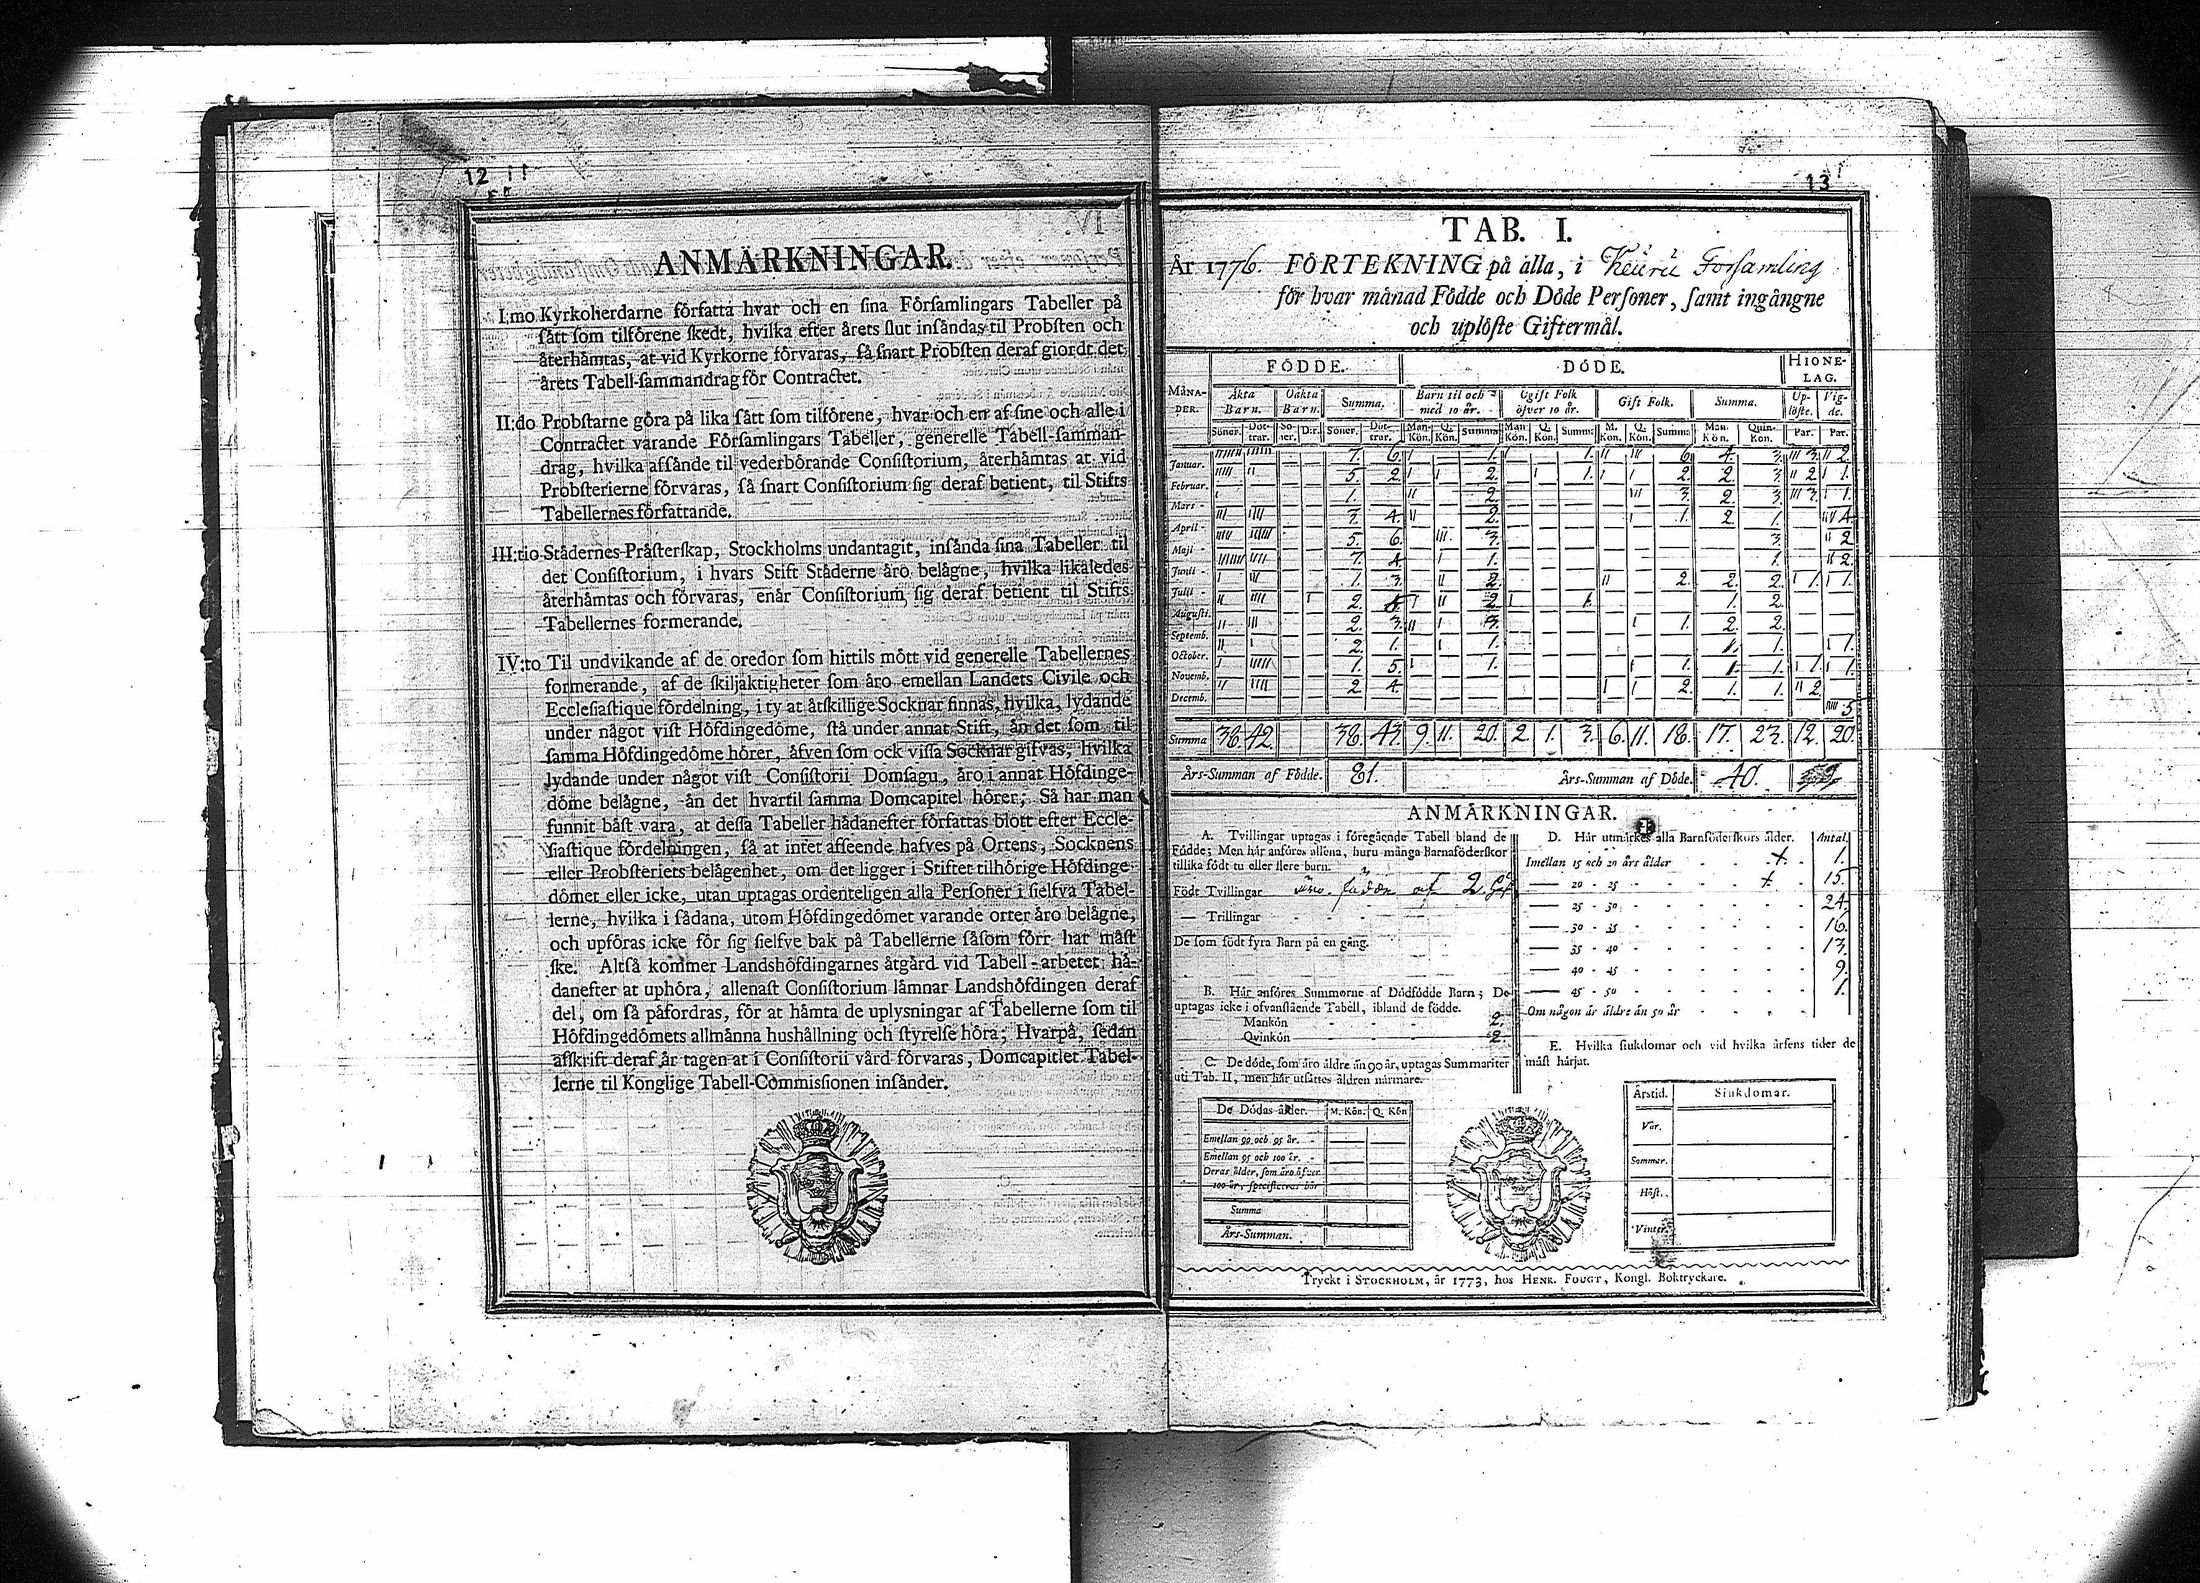 12 11
ANMÄRKNINGAR.
I:mo Kyrkoherdarne författa hvar och en sina Församlingars Tabeller på
sått som tilförene skedt, hvilka efter årets slut insåndas til Probsten och
återhåmtas, at vid Kyrkorne förvaras, så snart Probsten deraf giordt det
årets Tabell-sammandrag för Contractet.
II:do Probstarne göra på lika sått som tilförene, hvar och en af sine och alle i
Contractet varande Församlingars Tabeller, generelle Tabell-samman-
drag, hvilka afsånde til vederbörande Consistorium, återhåmtas at vid
Probsterierne förvaras, så snart Consistorium sig deraf betient, til Stifts
Tabellernes författande.
III:tio Stådernes Pråsterskap, Stockholms undantagit, insånda sina Tabeller til
det Consistorium, i hvars Stift Ståderne åro belågne, hvilka likaledes
återhåmtas och förvaras, enår Consistorium sig deraf betient til Stifts
Tabellernes formerande.
IV:to Til undvikande af de oredor som hittils mött vid generelle Tabellernes
formerande, af de skiljaktigheter som åro emellan Landets Civile och
Ecclesiastique fördelning, i ty at åtskillige Socknar finnas, hvilka, lydande
under något vist Höfdingedöme, stå under annat Stift, ån det som til
samma Höfdingedöme hörer, åfven som ock vissa Socknar gifvas, hvilka
lydande under något vist Consistorii Domsagu, åro i annat Höfdinge-
döme belågne, ån det hvartil samma Domcapitel hörer; Så har man
funnit båst vara, at dessa Tabeller hådanefter författas blott efter Eccle-
siastique fördelningen, så at intet afseende hafves på Ortens, Socknens
eller Probsteriets belågenhet, om det ligger i Stiftet tilhörige Höfdinge-
dömet eller icke, utan uptagas ordenteligen alla Personer i sielfva Tabel-
lerne, hvilka i sådana, utom Höfdingedömet varande orter åro belågne,
och upföras icke för sig sielfve bak på Tabellerne såsom förr har måst
ske. Altså kommer Landshöfdingarnes åtgård vid Tabell-arbetet hå-
danefter at uphöra, allenast Consistorium låmnar Landshöfdingen deraf
del, om så påfordras, för at håmta de uplysningar af Tabellerne som til
Höfdingedömets allmånna hushållning och styrelse höra; Hvarpå, sedan
afskrift deraf år tagen at i Consistorii vård förvaras, Domcapitlet Tabel-
lerne til Konglige Tabell-Commissionen insånder.
13
TAB. I.
År 1776. FÖRTEKNING på alla, i Keuru Församling
för hvar månad Födde och Döde Personer, samt ingångne
och uplöste Giftermål.
FÖDDE. DÖDE. HIONE-
LAG.
MÅNA-
DER. Äkta Barn. Oäkta Barn. Summa. Barn til och med 10 år. Ogift Folk öfver 10 år. Gift Folk. Summa. Up-löste. Vig-de.
Söner. Döt-trar. Sö-ner. D:r. Söner. Döt-trar. Man-Kön. Q. Kön. Summa Man Kön. Q. Kön. Summa M. Kön. Q. Kön. Summa Man-Kön. Quin-Kön. Par. Par.
Januar. 7. 6. 1. 1. 6. 4. 3. 3. 2.
Februar. 5. 2. 2. 1. 2. 2. 3. 2. 1.
Mars - 1. 2. 3. 2. 3. 3. 1.
April - 3. 4. 2. 1. 2. 1. 4.
Maji - 5. 6. 3. 3. 2
Junii - 7. 4. 1. 1. 2.
Julii - 1. 3. 2. 2. 2. 2. 1. 1.
Augusti. 2. 5. 2. 1. 1. 2.
Septemb. 2. 3. 3. 1. 2. 2.
October. 2. 1. 1. 1. 1. 1.
Novemb. 1. 5. 1. 1. 1. 1. 1. 1.
Decemb. 2. 4. 2. 1. 1. 2. 5
Summa 38. 42. 38. 43. 9. 11. 20. 2. 1. 3. 6. 11. 18. 17. 23. 12. 20.
Års-Summan af Födde. 81. Års-Summan af Döde. 40.
ANMÄRKNINGAR.
A. Tvillingar uptagas i föregående Tabell bland de
Födde; Men hår anföres allena, huru många Barnaföderskor
tillika födt tu eller flere barn.
Födt Tvillingar äro födde af 2
— Trillingar
De som födt fyra Barn på en gång.
B. Hår anföres Summorne af Dödfödde Barn; De
uptagas icke i ofvanstående Tabell, ibland de födde.
Mankön - 2.
Qvinkön - 2.
C. De döde, som åro åldre ån 90 år, uptagas Summariter
uti Tab. II, men hår utsåttes åldren nårmare.
De Dödas ålder. M. Kön. Q. Kön
Emellan 90 och 95 år. -
Emellan 95 och 100 år. -
Deras ålder, som åro öfver
100 år, specificeras hår
Summa
Års-Summan.
D. Hår utmårkes alla Barnföderskors ålder. Antal.
Imellan 15 och 20 års ålder - 1.
— 20 - 25 - 15.
— 25 - 30 - 24.
— 30 - 35 - 16.
— 35 - 40 - 13.
— 40 - 45 - 9.
— 45 - 50 - 1.
Om någon år åldre ån 50 år
E. Hvilka siukdomar och vid hvilka årsens tider de
måst hårjat.
Årstid. Siukdomar.
Vår.
Sommar.
Höst.
Vinter.
Tryckt i STOCKHOLM, år 1773, hos HENR. FOUGT, Kongl. Boktryckare.